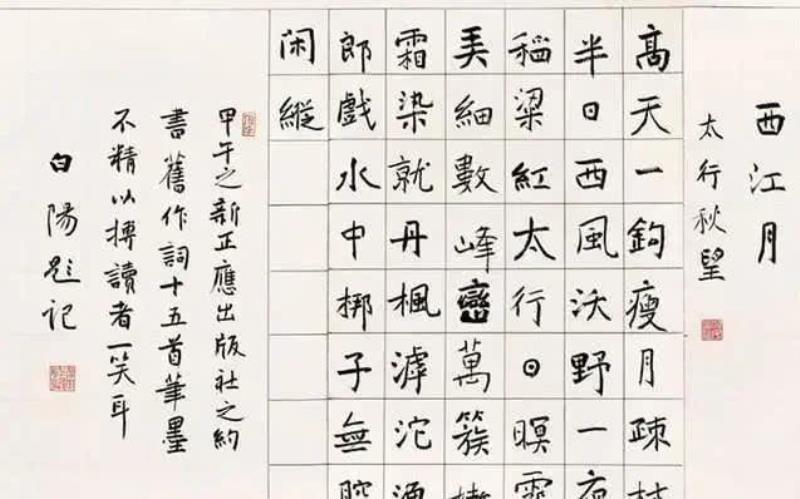 西江月
太行秋望
高天一鉤瘦月疎
半日西風沃野一夜
稻粱紅太行日暝
美細數峰巒萬簇
霜染就丹楓滹沱
郎戲水中梆子無腔
闲縱
甲午之新正應出版社之約
書舊作詞十五首筆墨
不精以搏讀者一笑耳
白陽題记